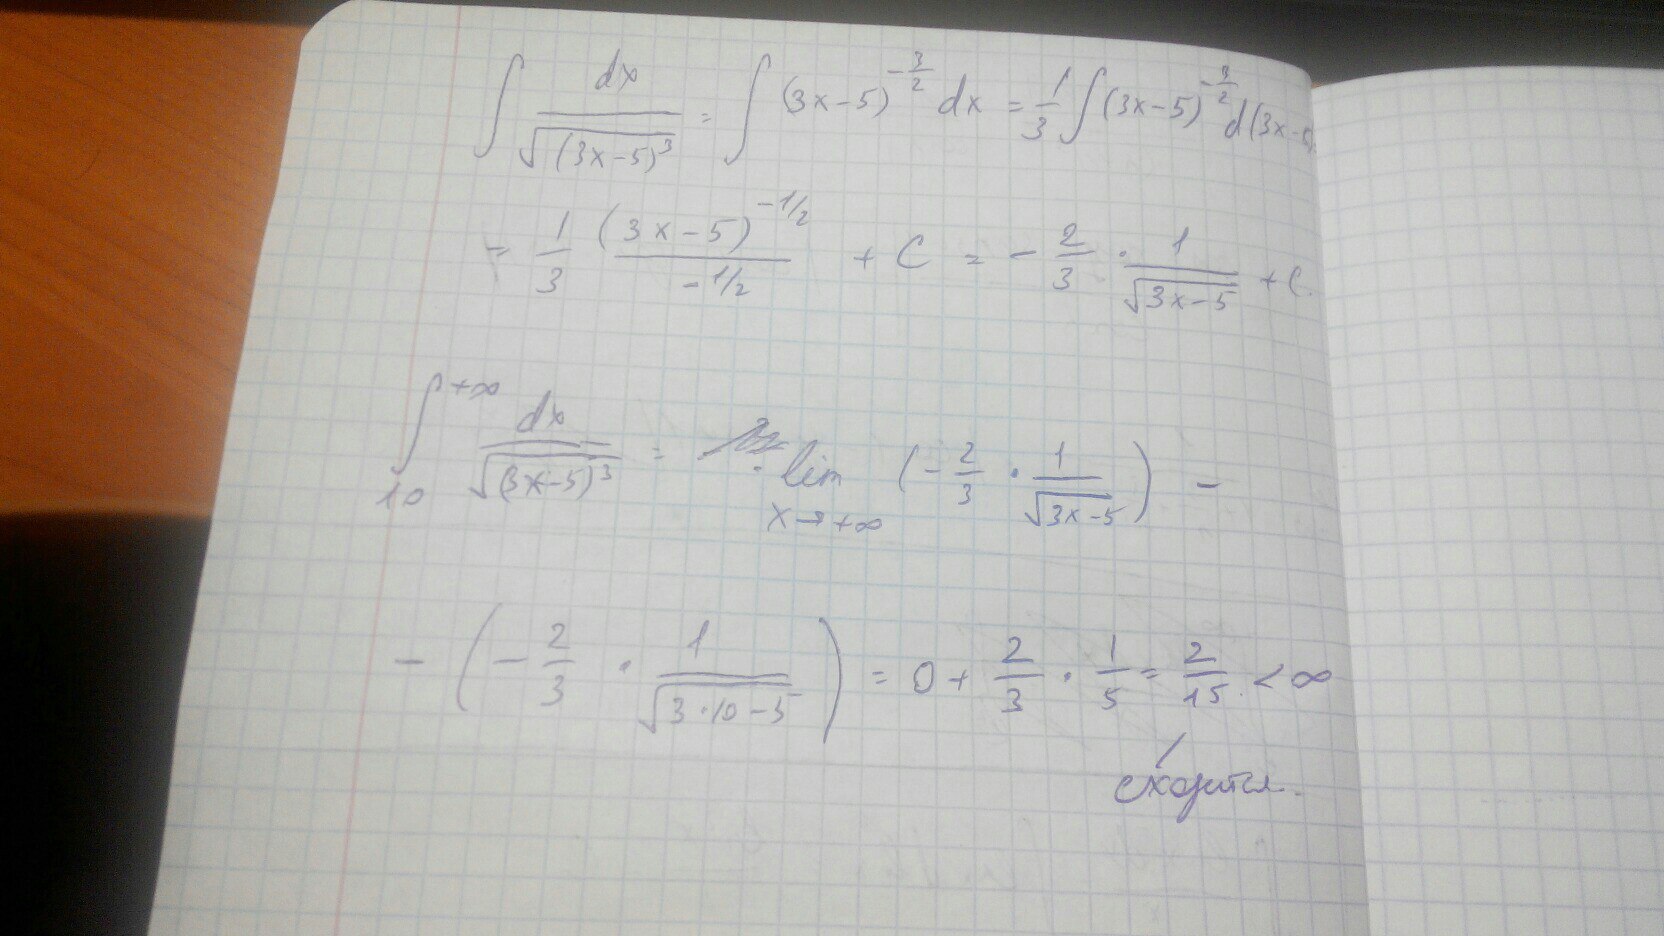 ∫ dx/√(3x-5)³ = ∫ (3x-5)^(-3/2) dx = 1/3 ∫ (3x-5)^(-3/2) d(3x-5)
= 1/3 (3x-5)^(-1/2)/(-1/2) + C = -2/3 · 1/√(3x-5) + C.
∫₁₀^(+∞) dx/√(3x-5)³ = lim x→+∞ (-2/3 · 1/√(3x-5)) -
- (-2/3 · 1/√(3·10-5)) = 0 + 2/3 · 1/5 = 2/15 < ∞
сходится.